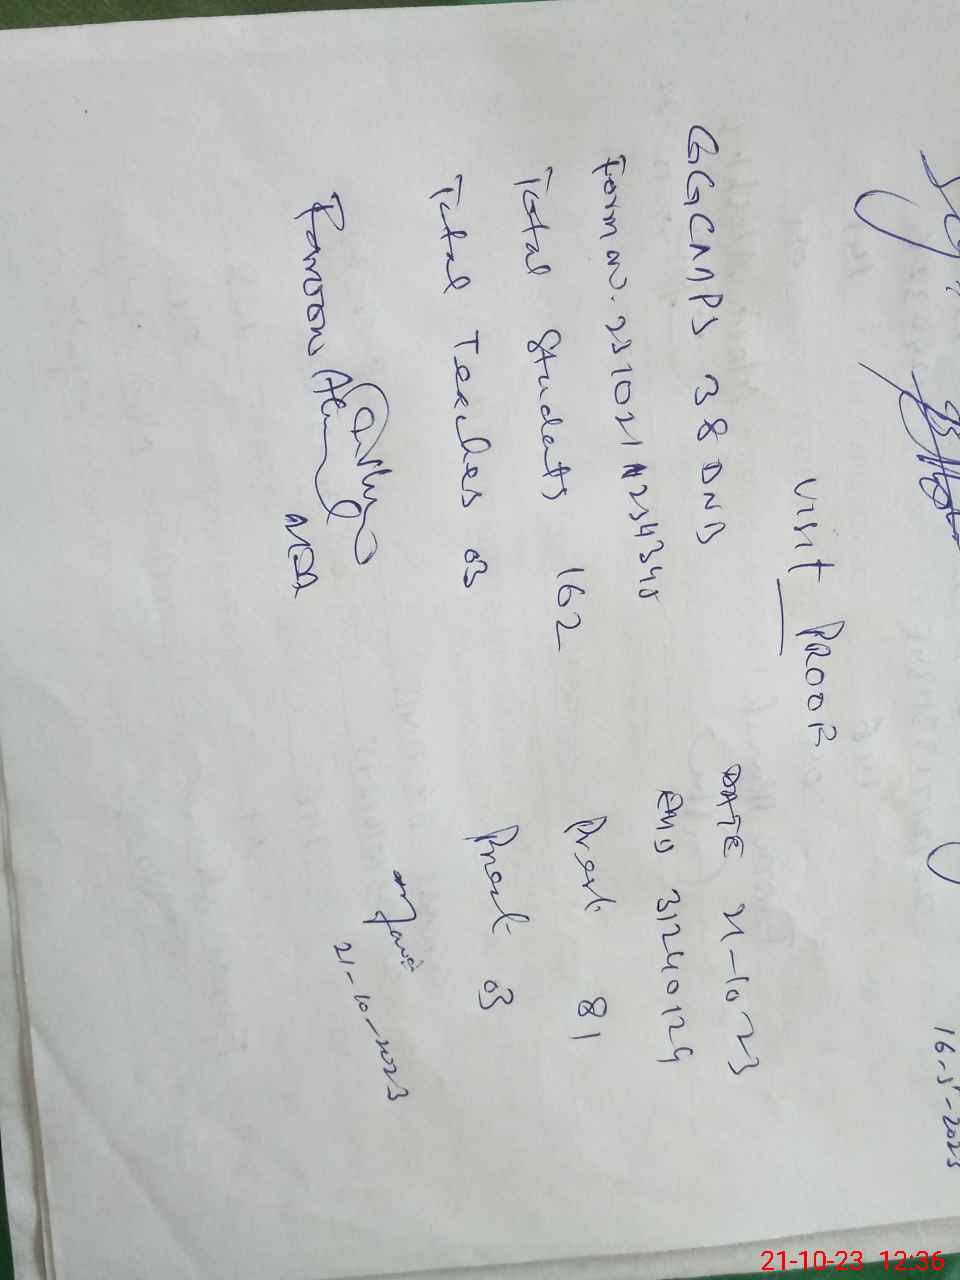 16-5-2023
Visit PROOF
GGCMPS 38 DNB DATE 21-10 23
Form no. 231021 N234340 EMIS 31240129
Total Students 162 Prest 81
Total Teaches 03 Prest 03
MEA
21-10-2023
21-10-23 12:36